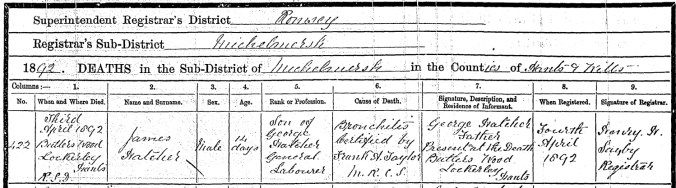 Superintendent Registrar's District Romsey
Registrar's Sub-District Michelmersh
1892. DEATHS in the Sub-District of Michelmersh in the Counties of Hants & Wilts
Columns:— 1. 2. 3. 4. 5. 6. 7. 8. 9.
No. When and Where Died. Name and Surname. Sex. Age. Rank or Profession. Cause of Death. Signature, Description, and Residence of Informant. When Registered. Signature of Registrar.
422
Third
April 1892
Butlers Wood
Lockerley
Hants
R.S.D.
James
Hatcher
Male
14
days
Son of
George
Hatcher
General
Labourer
Bronchitis
Certified by
Frank H. Taylor
M.R.C.S.
George Hatcher
Father
Present at the Death
Butlers Wood
Lockerley
Hants
Fourth
April
1892
Henry H.
Registrar